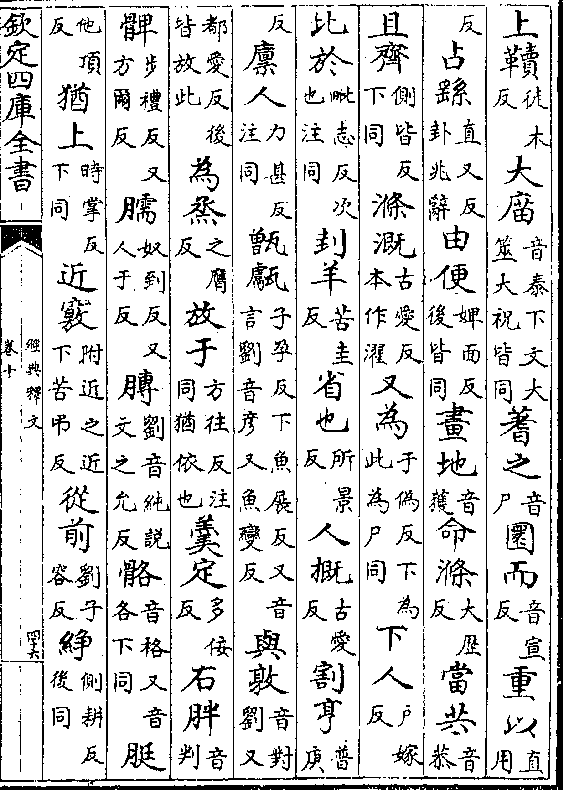 上韇徒木反大庿音泰下文大筮大祝皆同蓍之音尸圛而音宣反重以直用
反占繇直又反卦兆辭由便婢面反後皆同畫地音獲命滌大歷反當共音恭
且齊側皆反下同滌溉古愛反本作濯又為于偽反下為此為尸同下人戶嫁反
比於毗志反次也注同刲羊苦圭反省也所景反人摡古愛反割亨普庚
反廩人力甚反注同甑甗子孕反下魚展反又音言劉音彦又魚變反與敦音對劉又
都愛反後皆放此為烝之膺反放于方往反注同猶依也羹定多佞反右胖音判
髀步禮反又方爾反臑奴到反又人于反膞劉音純說文之允反骼音格又音各下同脡
他頂反猶上時掌反下同近竅附近之近下苦弔反從前劉子容反綪側耕反後同
欽定四庫全書
經典釋文
卷十
四六